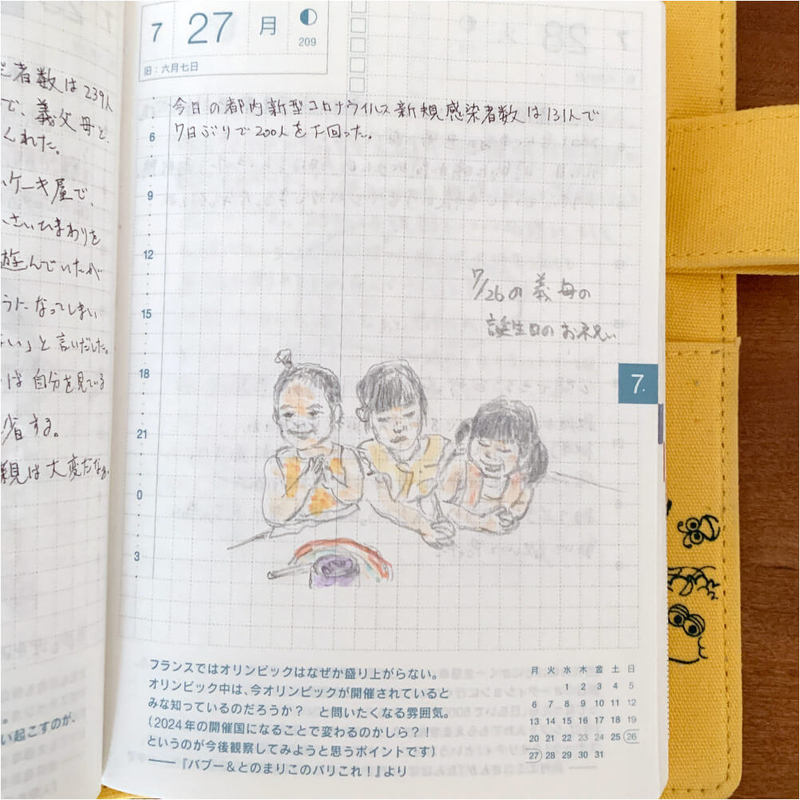 え者数は239人
で、義父母と
くれた。
いケーキ屋で、
さいひまわりを
遊んでいたが
うになってしまい
い」と言いだした。
は自分を見ている
省する。
親は大変だなぁ
い起こすのが、
7 27 月
209
旧：六月七日
今日の都内新型コロナウイルス新規感染者数は131人で
7日ぶりで200人を下回った。
6
9
12
7/26の義母の
誕生日のお祝い
15
18
7.
21
0
3
フランスではオリンピックはなぜか盛り上がらない。
オリンピック中は、今オリンピックが開催されていると
みな知っているのだろうか？ と問いたくなる雰囲気。
(2024年の開催国になることで変わるのかしら？！
というのが今後観察してみようと思うポイントです)
──『バブー＆とのまりこのパリこれ！』より
月 火 水 木 金 土 日
1 2 3 4 5
6 7 8 9 10 11 12
13 14 15 16 17 18 19
20 21 22 23 24 25 26
27 28 29 30 31